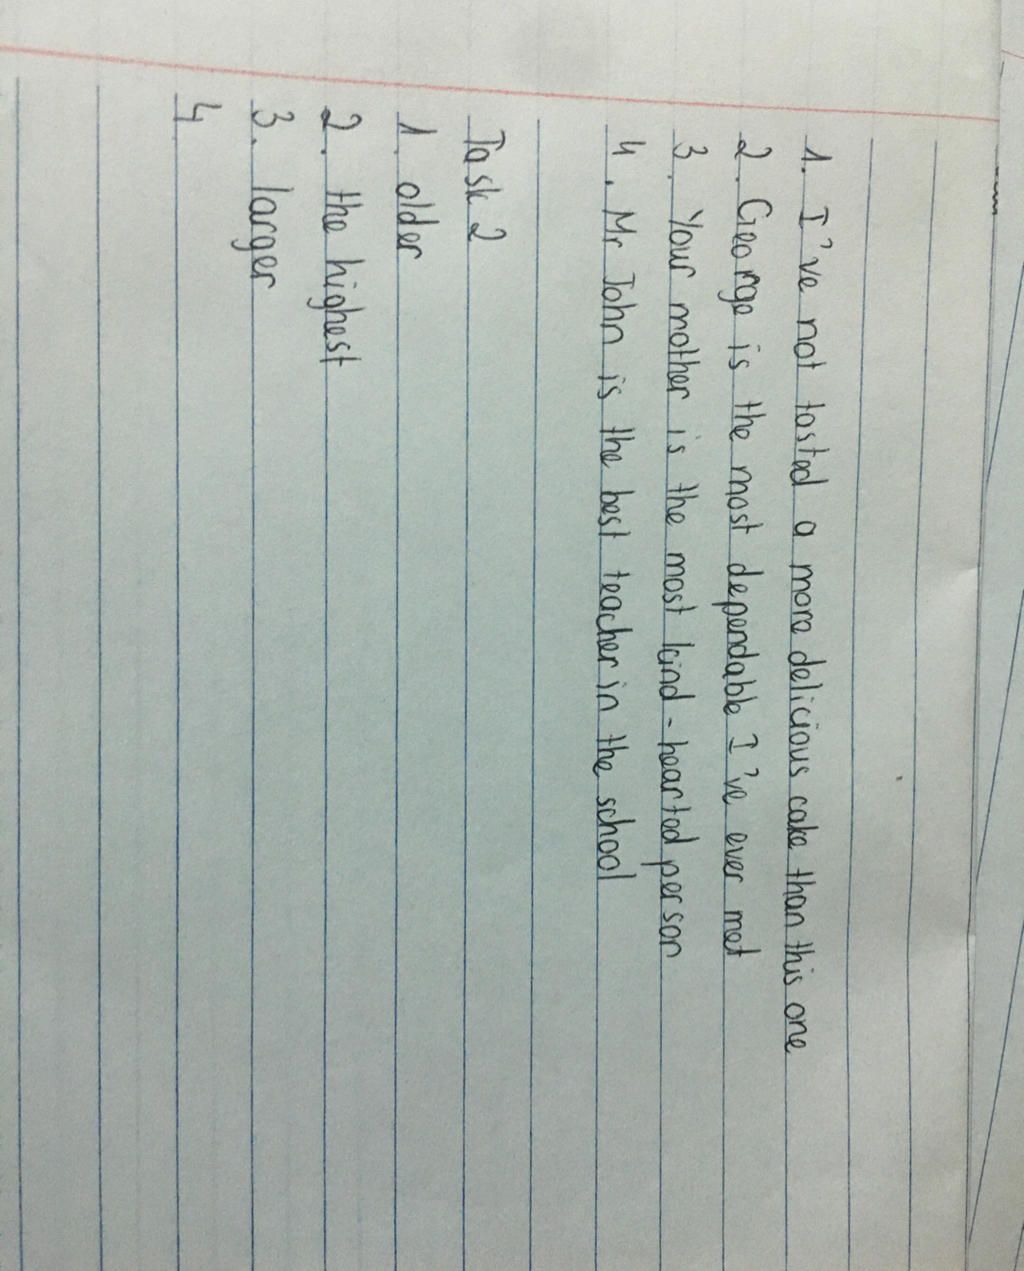 1. I've not tasted a more delicious cake than this one
2. George is the most dependable I've ever met
3. Your mother is the most kind-hearted person
4. Mr John is the best teacher in the school
Task 2
1. older
2. the highest
3. larger
4